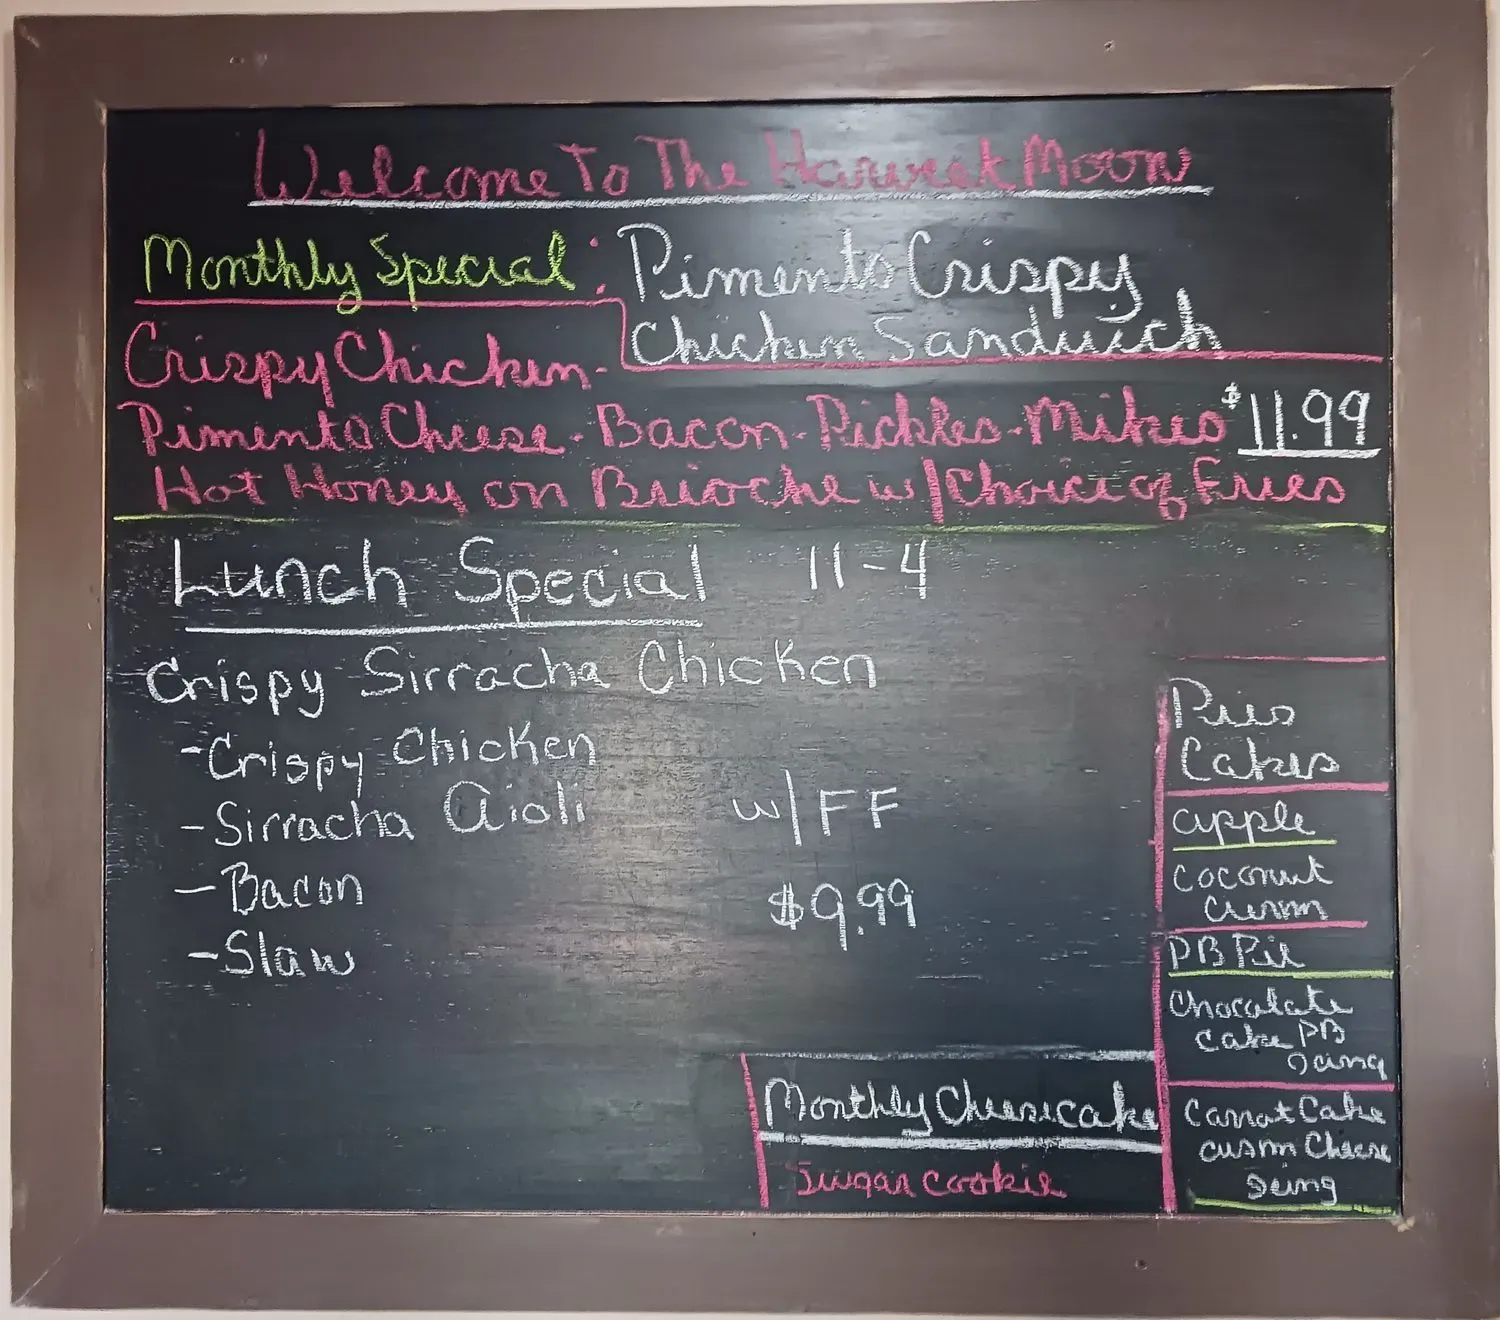 Welcome To The Harvest Moon
Monthly Special : Pimento Crispy
Chicken Sandwich
Crispy Chicken -
Pimento Cheese - Bacon - Pickles - Mikes $11.99
Hot Honey on Brioche w/ Choice of Fries
Lunch Special 11-4
Crispy Sirracha Chicken
- Crispy Chicken
- Sirracha Aioli w/ FF
- Bacon
$9.99
- Slaw
Pies
Cakes
apple
coconut
cream
PB Pie
Chocolate
cake PB
Icing
Carrot Cake
cream Cheese
Icing
Monthly Cheesecake
Sugar cookie